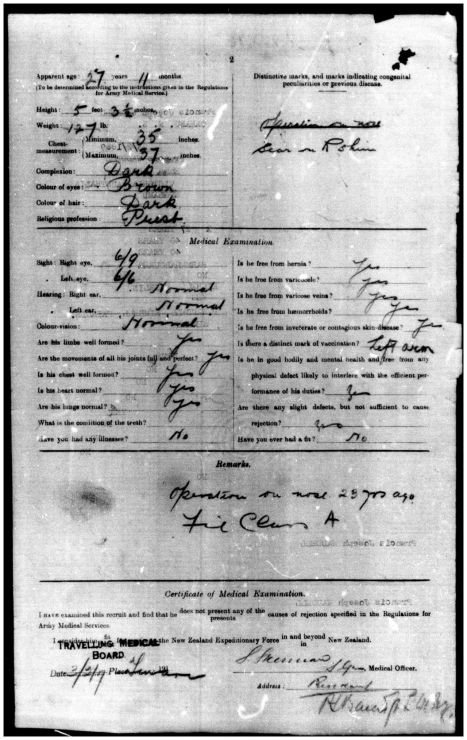 2
Apparent age: 27 years 11 months.
(To be determined according to the instructions given in the Regulations for Army Medical Service.)
Height: 5 feet 3½ inches.
Weight: 127 lb.
Chest-measurement: Minimum, 35 inches.
Maximum, 37 inches.
Complexion: Dark
Colour of eyes: Brown
Colour of hair: Dark
Religious profession: Priest
Distinctive marks, and marks indicating congenital
peculiarities or previous disease.
Operation on nose
Scar on R shin
Medical Examination
Sight: Right eye, 6/9
Left eye, 6/6
Hearing: Right ear, Normal
Left ear, Normal
Colour-vision: Normal
Are his limbs well formed? Yes
Are the movements of all his joints full and perfect? Yes
Is his chest well formed? Yes
Is his heart normal? Yes
Are his lungs normal? Yes
What is the condition of the teeth?
Have you had any illnesses? No
Is he free from hernia? Yes
Is he free from varicocele? Yes
Is he free from varicose veins? Yes
Is he free from hæmorrhoids? Yes
Is he free from inveterate or contagious skin-disease? Yes
Is there a distinct mark of vaccination? Left arm
Is he in good bodily and mental health and free from any
physical defect likely to interfere with the efficient per-
formance of his duties? Yes
Are there any slight defects, but not sufficient to cause
rejection? Yes
Have you ever had a fit? No
Remarks.
Operation on nose 23 yrs ago.
Fit Class A
Certificate of Medical Examination.
I have examined this recruit and find that he does not present any of the causes of rejection specified in the Regulations for
presents
Army Medical Services.
I consider him fit for the New Zealand Expeditionary Force in and beyond New Zealand.
in
TRAVELLING MEDICAL
BOARD.
Date: 3/2/19 Place:
Medical Officer.
Address: